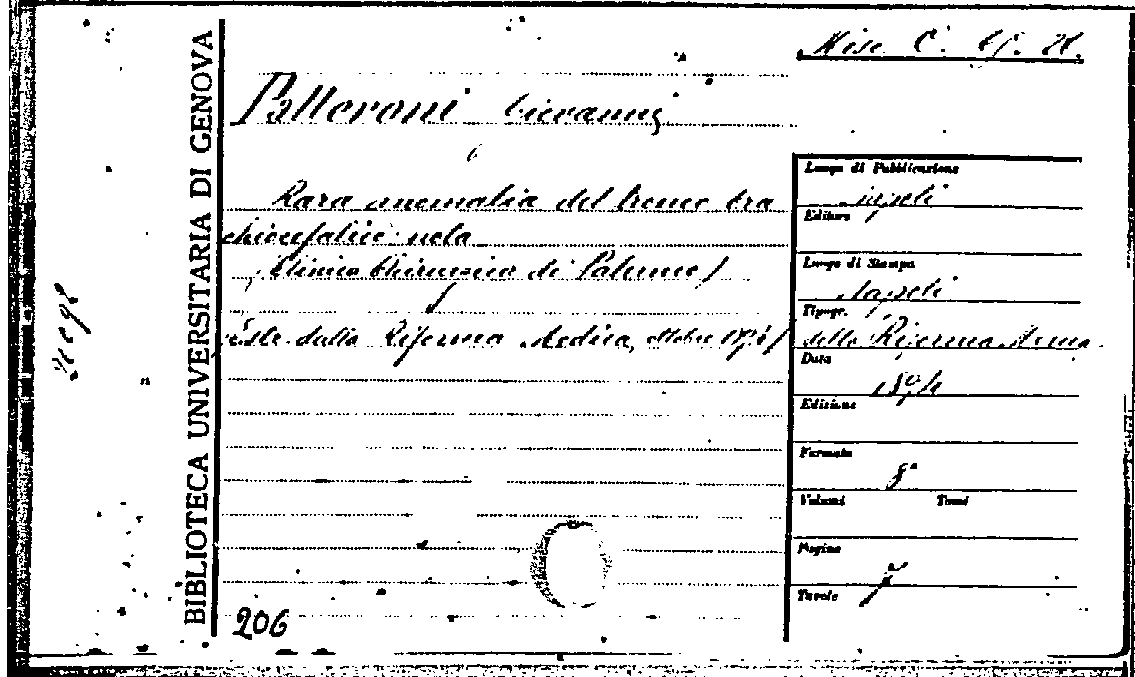 BIBLIOTECA UNIVERSITARIA DI GENOVA
Misc. C.
Palleroni Giovanni
Rara anomalia del tronco bra
chiocefalico: nota
(Clinica Chirurgica di Palermo)
Estr. dalla Riforma Medica, ottobre
Luogo di Pubblicazione
Napoli
Editore
Luogo di Stampa
Napoli
Tipogr.
della Riforma Medica
Data
Edizione
Formato
8°
Volumi Tomi
Pagine
Tavole
206